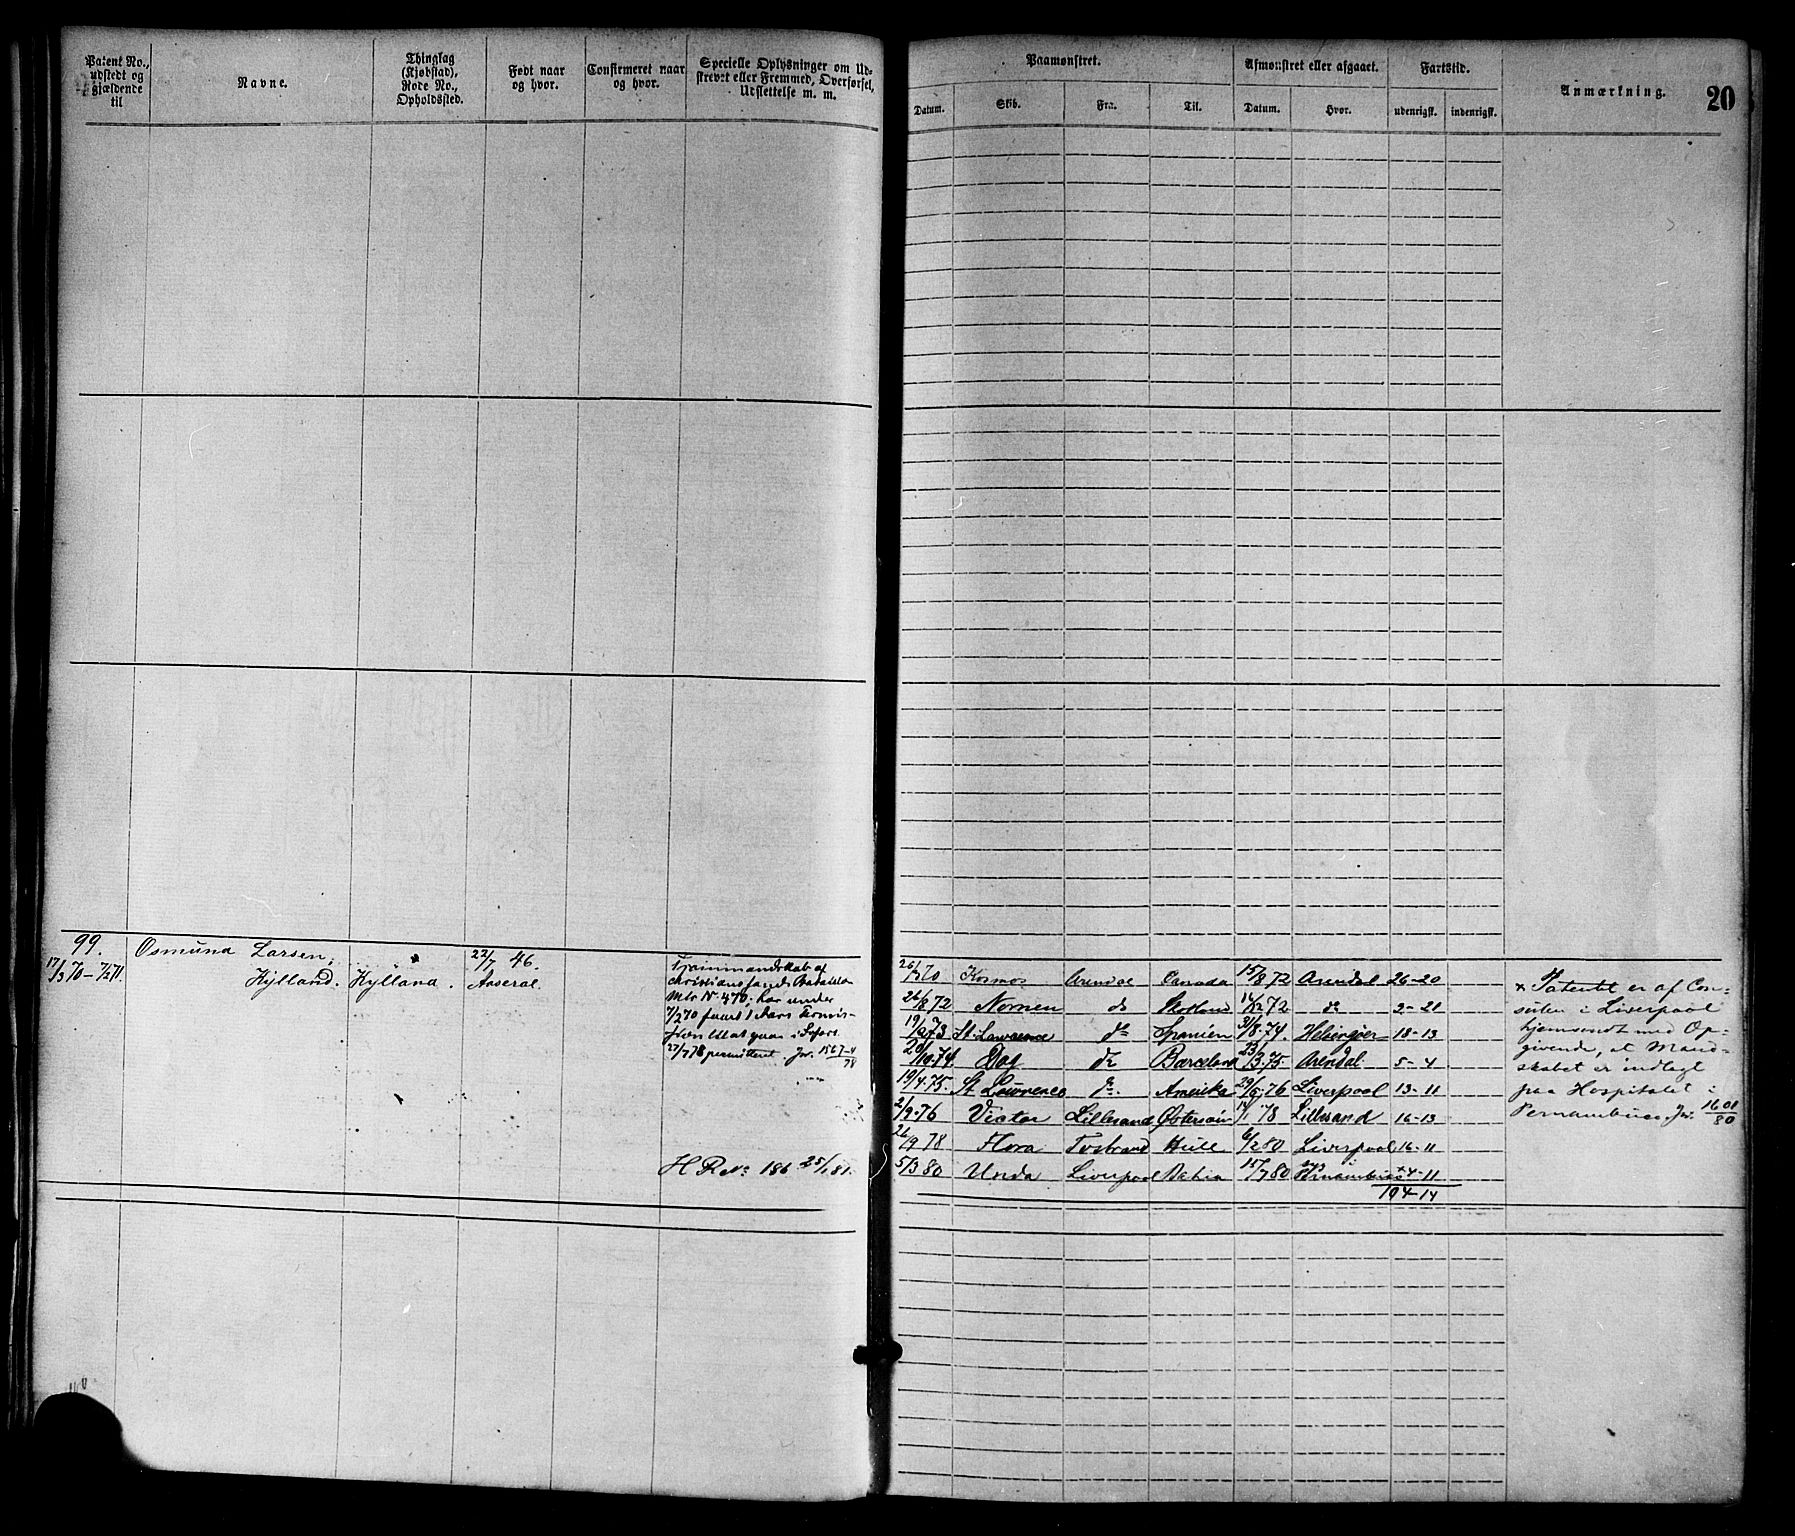 Patent No., udstedt og gjældende til
Navne.
Thinglag (Kjøbstad), Rode No., Opholdssted.
Født naar og hvor.
Confirmeret naar og hvor.
Specielle Oplysninger om Udskrevet eller Fremmed, Overførsel, Udslettelse m. m.
Paamønstret.
Afmønstret eller afgaaet.
Fartstid.
Anmærkning.
20
Datum.
Skib.
Fra.
Til.
Datum.
Hvor.
udenrigst.
indenrigst.
99.
17/3 70 – 7/2 71
Osmund Larsen,
Hylland.
Hylland.
22/7 46.
Aaseral.
christianssands Bataillon
Mtr Nr 470; har under
7/2 70 faaet 1 Aars
27/7 78 permitteret. Jr. 1567-4/78
H R No 186 25/1 81.
70 Kosmos Arendal Canada 15/8 72 Arendal 26-20
26/8 72 Nornen do Skotland 72 do 2-21
73 St. Lawrence do Spanien 31/8 74. Helsingør 18-13
20/10 74 Dag do Barcelona 23/3 75. Arendal 5-4
19/4 75. St Lawrence do. Amerika 29/5 76 Liverpool 13-11
2/9 76 Victor Lillesand Østersøen 78 Lillesand 16-13
26/9 78 Flora Tvedestrand Hull 6/2 80 Liverpool 16-11
5/3 80 Unda Liverpool Bahia 15/7 80 Pernambuco × 4-11
104-14
× Patentet er af Con-
sulen i Liverpool
hjemsendt med Op-
givende, at Mand-
skabet er indlagt
paa Hospitalet i
Pernambuco, Jr. 1601/80